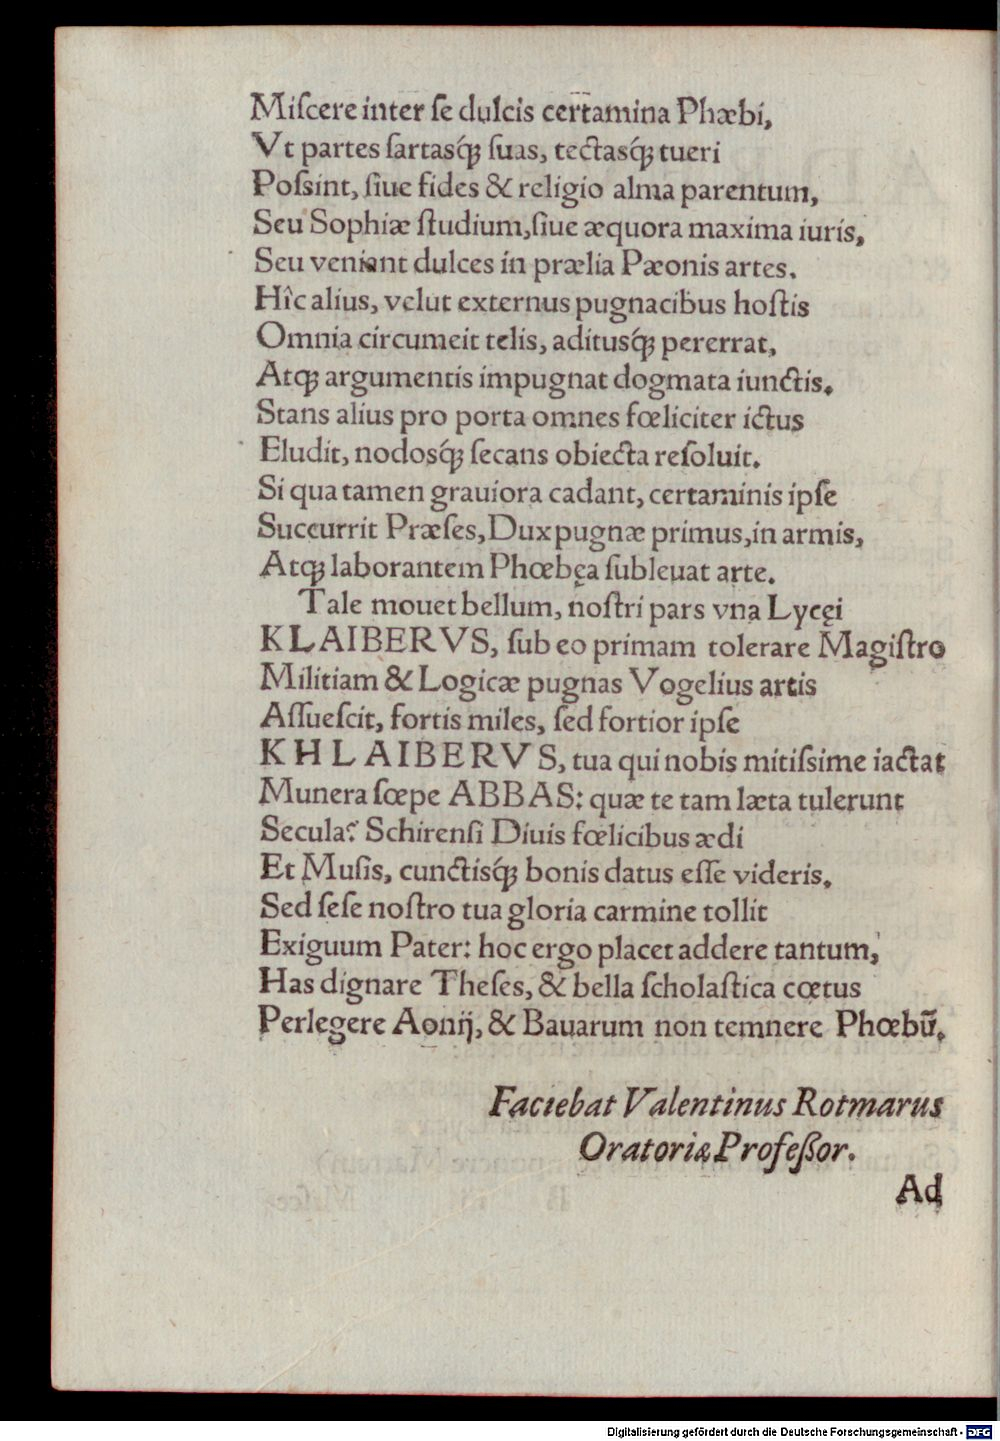 Miſcere inter ſe dulcis certamina Phæbi,
Vt partes ſartasq́ꝫ ſuas, tectasq́ꝫ tueri
Poſsint, ſiue fides & religio alma parentum,
Seu Sophiæ ſtudium, ſiue æquora maxima iuris,
Seu veniant dulces in prælia Pæonis artes.
Hîc alius, velut externus pugnacibus hoſtis
Omnia circumeit telis, aditusq́ꝫ pererrat,
Atqꝫ argumentis impugnat dogmata iunctis.
Stans alius pro porta omnes fœliciter ictus
Eludit, nodosq́ꝫ ſecans obiecta reſoluit.
Si qua tamen grauiora cadant, certaminis ipſe
Succurrit Præſes, Dux pugnæ primus, in armis,
Atqꝫ laborantem Phœbęa ſubleuat arte.
Tale mouet bellum, noſtri pars vna Lycęi
KLAIBERVS, ſub eo primam tolerare Magiſtro
Militiam & Logicæ pugnas Vogelius artis
Aſſueſcit, fortis miles, ſed fortior ipſe
KHLAIBERVS, tua qui nobis mitiſsime iactat
Munera ſœpe ABBAS: quæ te tam læta tulerunt
Secula? Schirenſi Diuis fœlicibus ædi
Et Muſis, cunctisq́ꝫ bonis datus eſſe videris.
Sed ſeſe noſtro tua gloria carmine tollit
Exiguum Pater: hoc ergo placet addere tantum,
Has dignare Theſes, & bella ſcholaſtica cœtus
Perlegere Aonij, & Bauarum non temnere Phœbū.
Faciebat Valentinus Rotmarus
Oratoriæ Profeßor.
Ad
Digitalisierung gefördert durch die Deutsche Forschungsgemeinschaft - DFG